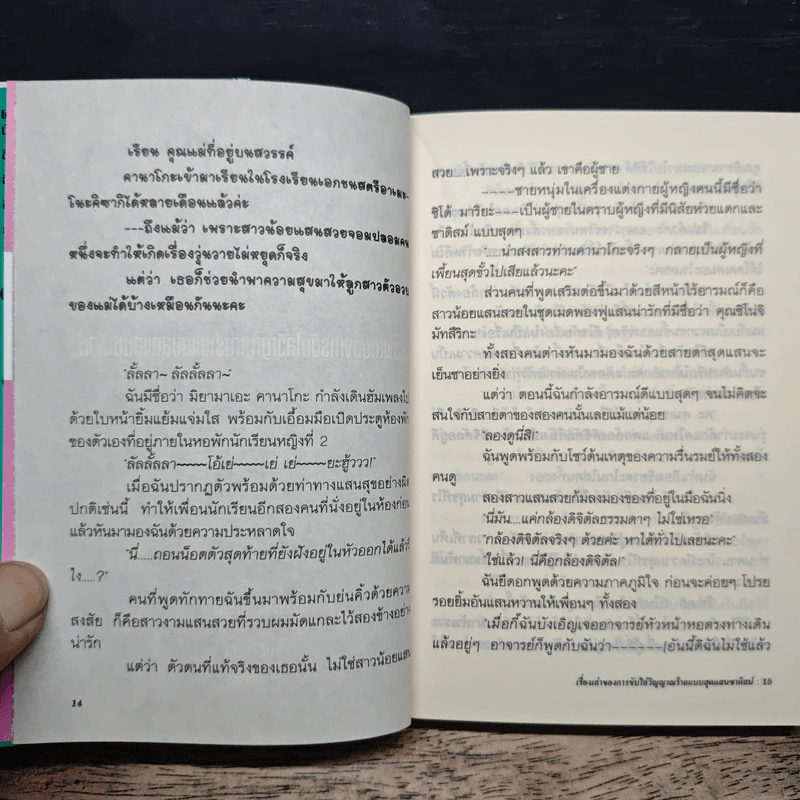 เรียน คุณแม่ที่อยู่บนสวรรค์
คานาโกะเข้ามาเรียนในโรงเรียนเอกชนสตรีอาเมะ-
โนะคิซากิได้หลายเดือนแล้วค่ะ
---ถึงแม้ว่า เพราะสาวน้อยแสนสวยจอมปลอมคน
หนึ่งจะทำให้เกิดเรื่องวุ่นวายไม่หยุดก็จริง
แต่ว่า เธอก็ช่วยนำพาความสุขมาให้ลูกสาวตัวอวบ
ของแม่ได้บ้างเหมือนกันนะคะ
"ลั้ลลา~ ลัลลั้ลลา~"
ฉันมีชื่อว่า มิยามาเอะ คานาโกะ กำลังเดินฮัมเพลงไป
ด้วยใบหน้ายิ้มแย้มแจ่มใส พร้อมกับเอื้อมมือเปิดประตูห้องพัก
ของตัวเองที่อยู่ภายในหอพักนักเรียนหญิงที่ 2
"ลัลลั้ลลา~~~~โอ้เย่~~~~เย่ เย่~~~~ยะฮู้ววว!"
เมื่อฉันปรากฏตัวพร้อมด้วยท่าทางแสนสุขอย่างผิด
ปกติเช่นนี้ ทำให้เพื่อนนักเรียนอีกสองคนที่นั่งอยู่ในห้องก่อน
แล้วหันมามองฉันด้วยความประหลาดใจ
"นี่.....ถอนน็อตตัวสุดท้ายที่ยังฝังอยู่ในหัวออกได้แล้วรึ
ไง.....?"
คนที่พูดทักทายฉันขึ้นมาพร้อมกับย่นคิ้วด้วยความ
สงสัย ก็คือสาวงามแสนสวยที่รวบผมมัดแกละไว้สองข้างอย่าง
น่ารัก
แต่ว่า ตัวตนที่แท้จริงของเธอนั้น ไม่ใช่สาวน้อยแสน
14
สวย....เพราะจริงๆ แล้ว เขาคือผู้ชาย
----ชายหนุ่มในเครื่องแต่งกายผู้หญิงคนนี้มีชื่อว่า
ชิโด้ มาริยะ---เป็นผู้ชายในคราบผู้หญิงที่มีนิสัยห่วยแตกและ
ซาดิสม์ แบบสุดๆ
"....น่าสงสารท่านคานาโกะจริงๆ กลายเป็นผู้หญิงที่
เพี้ยนสุดขั้วไปเสียแล้วนะคะ"
ส่วนคนที่พูดเสริมต่อขึ้นมาด้วยสีหน้าไร้อารมณ์ก็คือ
สาวน้อยแสนสวยในชุดเมดพองฟูแสนน่ารักที่มีชื่อว่า คุณชิโนจิ
มัทสึริกะ
ทั้งสองคนต่างหันมามองฉันด้วยสายตาสุดแสนจะ
เย็นชาอย่างยิ่ง
แต่ว่า ตอนนี้ฉันกำลังอารมณ์ดีแบบสุดๆ จนไม่คิดจะ
สนใจกับสายตาของสองคนนั้นเลยแม้แต่น้อย
"ลองดูนี่สิ!"
ฉันพูดพร้อมกับโชว์ต้นเหตุของความรื่นรมย์ให้ทั้งสอง
คนดู
สองสาวแสนสวยก้มลงมองของที่อยู่ในมือฉันนิ่ง
"นี่มัน....แค่กล้องดิจิตัลธรรมดาๆ ไม่ใช่เหรอ"
"กล้องดิจิตัลจริงๆ ด้วยค่ะ หาได้ทั่วไปเลยนะคะ"
"ใช่แล้ว! นี่คือกล้องดิจิตัล!"
ฉันยืดอกพูดด้วยความภาคภูมิใจ ก่อนจะค่อยๆ โปรย
รอยยิ้มอันแสนหวานให้เพื่อนๆ ทั้งสอง
"เมื่อกี้ฉันบังเอิญเจออาจารย์หัวหน้าหอตรงทางเดิน
แล้วอยู่ๆ อาจารย์ก็พูดกับฉันว่า------[อันนี้ดิฉันไม่ใช้แล้ว
เรื่องเล่าของการขับไล่วิญญาณร้ายแบบสุดแสนซาดิสม์ : 15